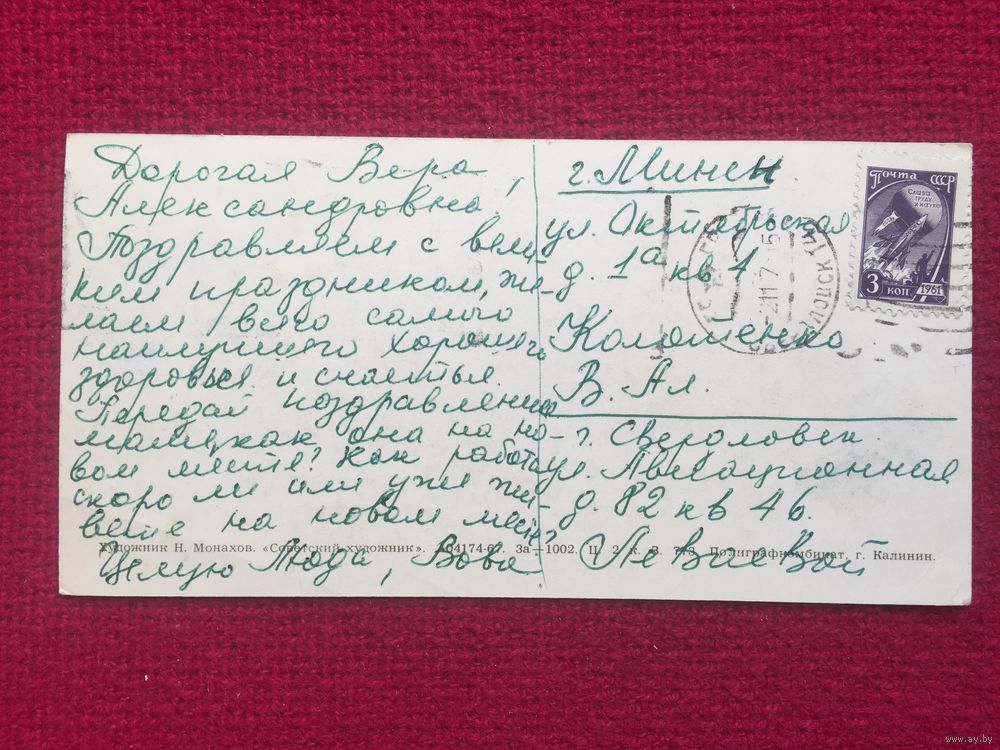 Дорогая Вера
Александровна,
Поздравляем с вели-
ким праздником, же-
лаем всего самого
наилучшего хорошего
здоровья и счастья.
Передай поздравления
маме, как она на но-
вом месте? Как работа
скоро ли или уже жи-
вете на новом месте?
Целую Люда, Вова
г. Минск
ул. Октябрьская
д. 1а кв 1
В. Ал.
г. Свердловск
ул. Авиационная
д. 82 кв 46.
Почта СССР
Слава
труду
и науке!
3 коп
1961
Художник Н. Монахов. «Советский художник». А04174-67. За—1002. Ц. 2 к. З. Полиграфкомбинат, г. Калинин.
www.ay.by